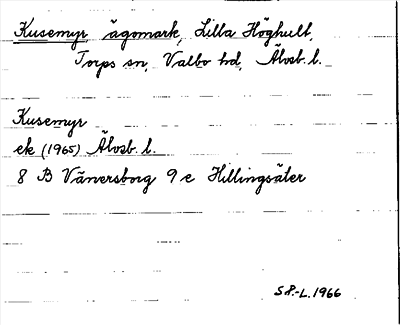 Kusemyr ägomark, Lilla Höghult,
Torps sn, Valbo hd, Älvsb. l.
Kusemyr
ek (1965) Älvsb. l.
8 B Vänersborg 9 e Hillingsäter
S P.-L. 1966